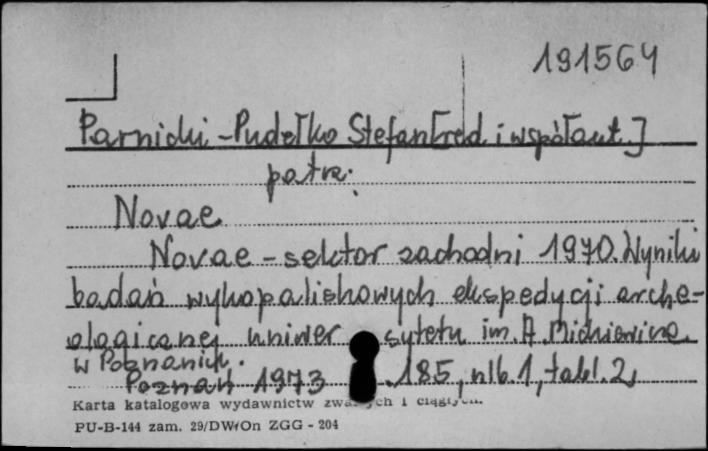 191564
Parnicki-Pudełko Stefan [red. i współaut.]
patrz:
Novae
Novae - sektor zachodni 1970. Wyniki
badań wykopaliskowych ekspedycji arche-
ologicznej uniwersytetu im. A. Mickiewicza
w Poznaniu.
Poznań 1973 .185, nlb. 1, tabl. 2,
Karta katalogowa wydawnictw zwartych i ciągłych.
PU-B-144 zam. 29/DW/On ZGG - 204